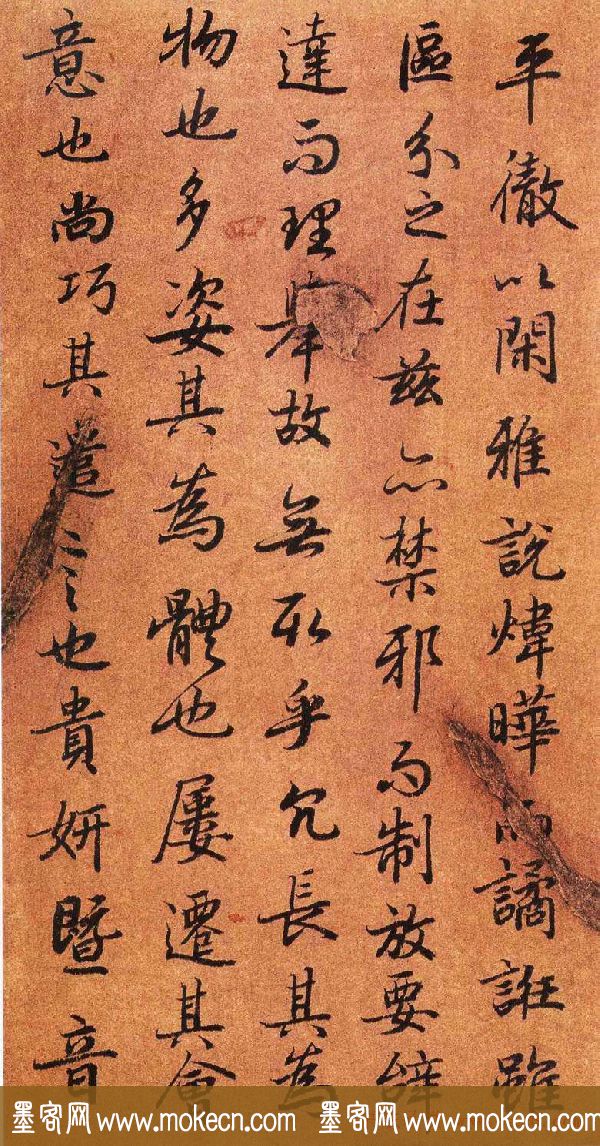 平徹以閑雅說煒曄而譎誑雖
區分之在茲亦禁邪而制放要辭
達而理舉故無取乎冗長其為
物也多姿其為體也屢遷其會
意也尚巧其遣言也貴妍暨音
墨客网 www.mokecn.com 墨客网 www.mokecn.com